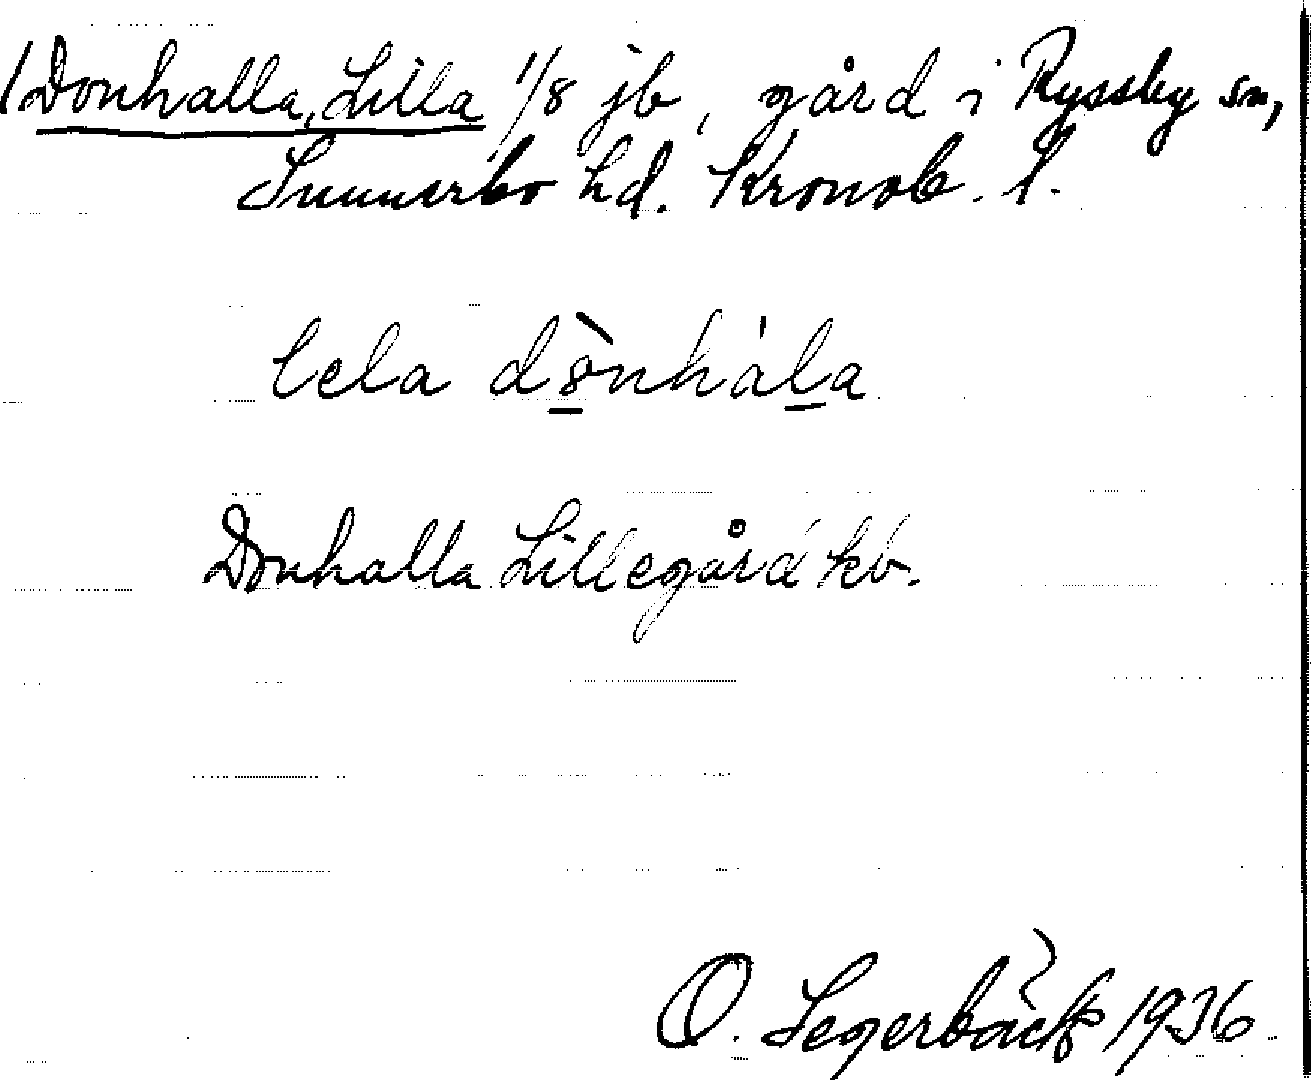 Donhalla, Lilla 1/8 jb, gård i Ryssby sn,
Sunnerbo hd. Kronob. l.
lela dònhàla
Donhalla Lillegård kb.
O. Segerbäck 1936